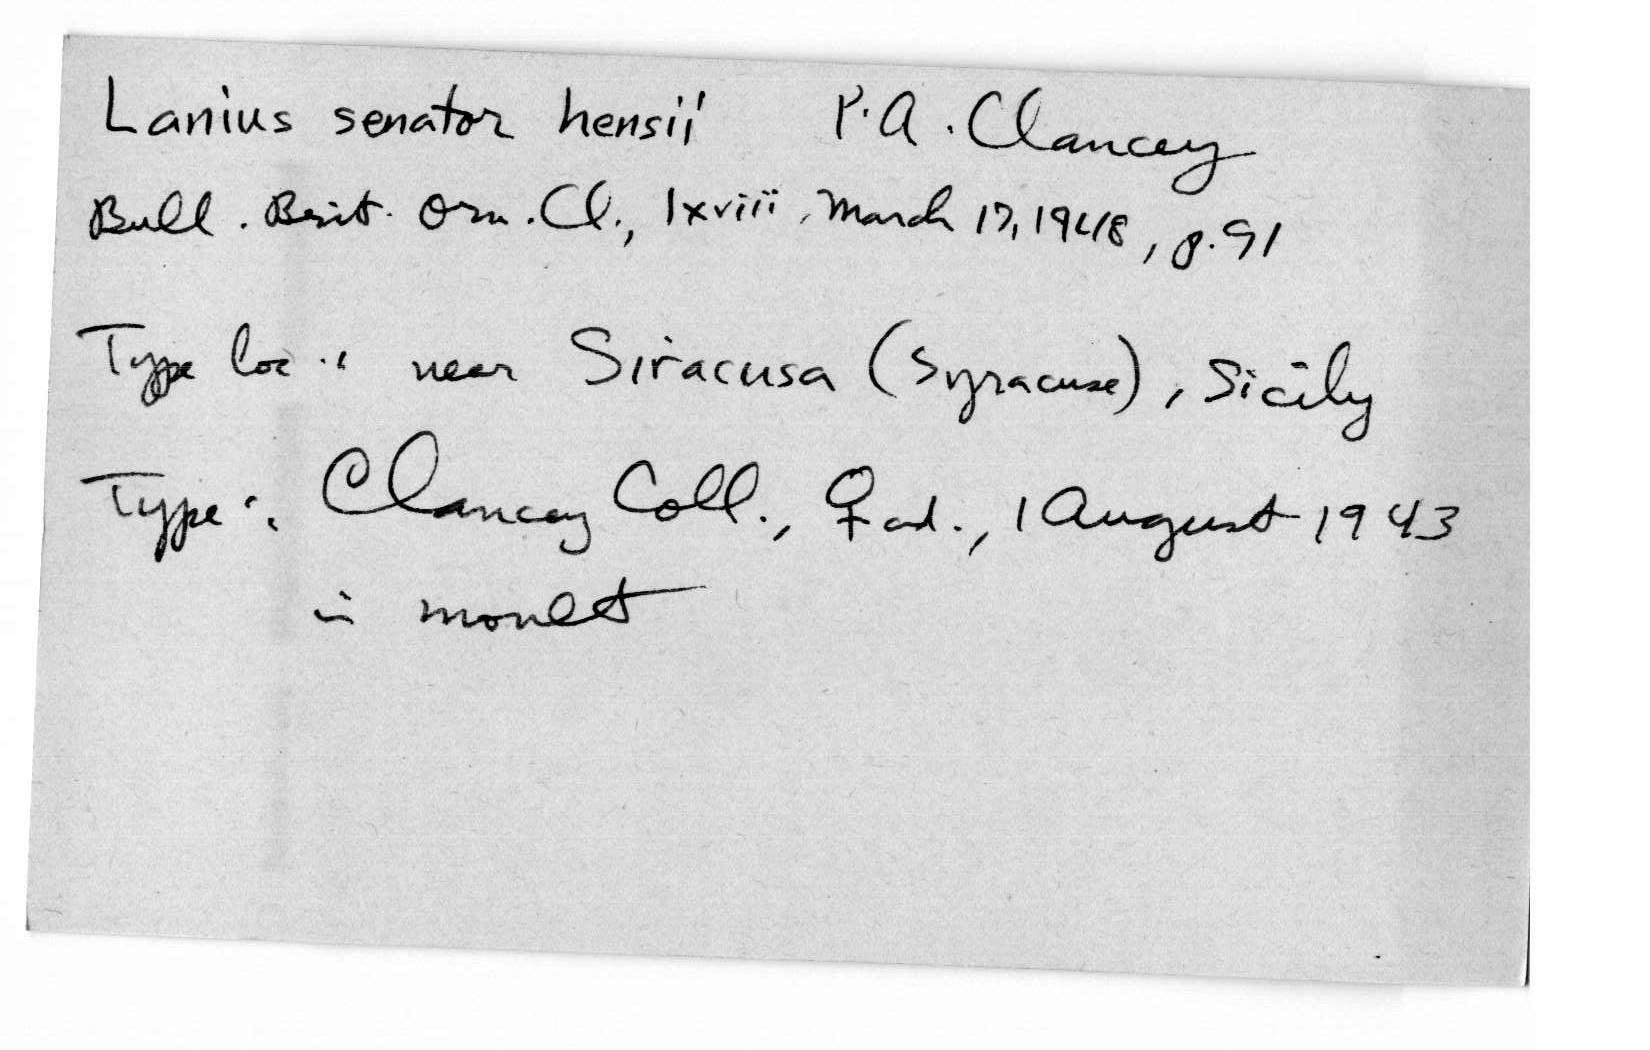 Lanius senator hensii P. A. Clancey
Bull. Brit. Orn. Cl., lxviii, March 17, 1948, p. 91
Type loc.: near Siracusa (Syracuse), Sicily
Type: Clancey Coll., ♀ ad., 1 August 1943
in moult